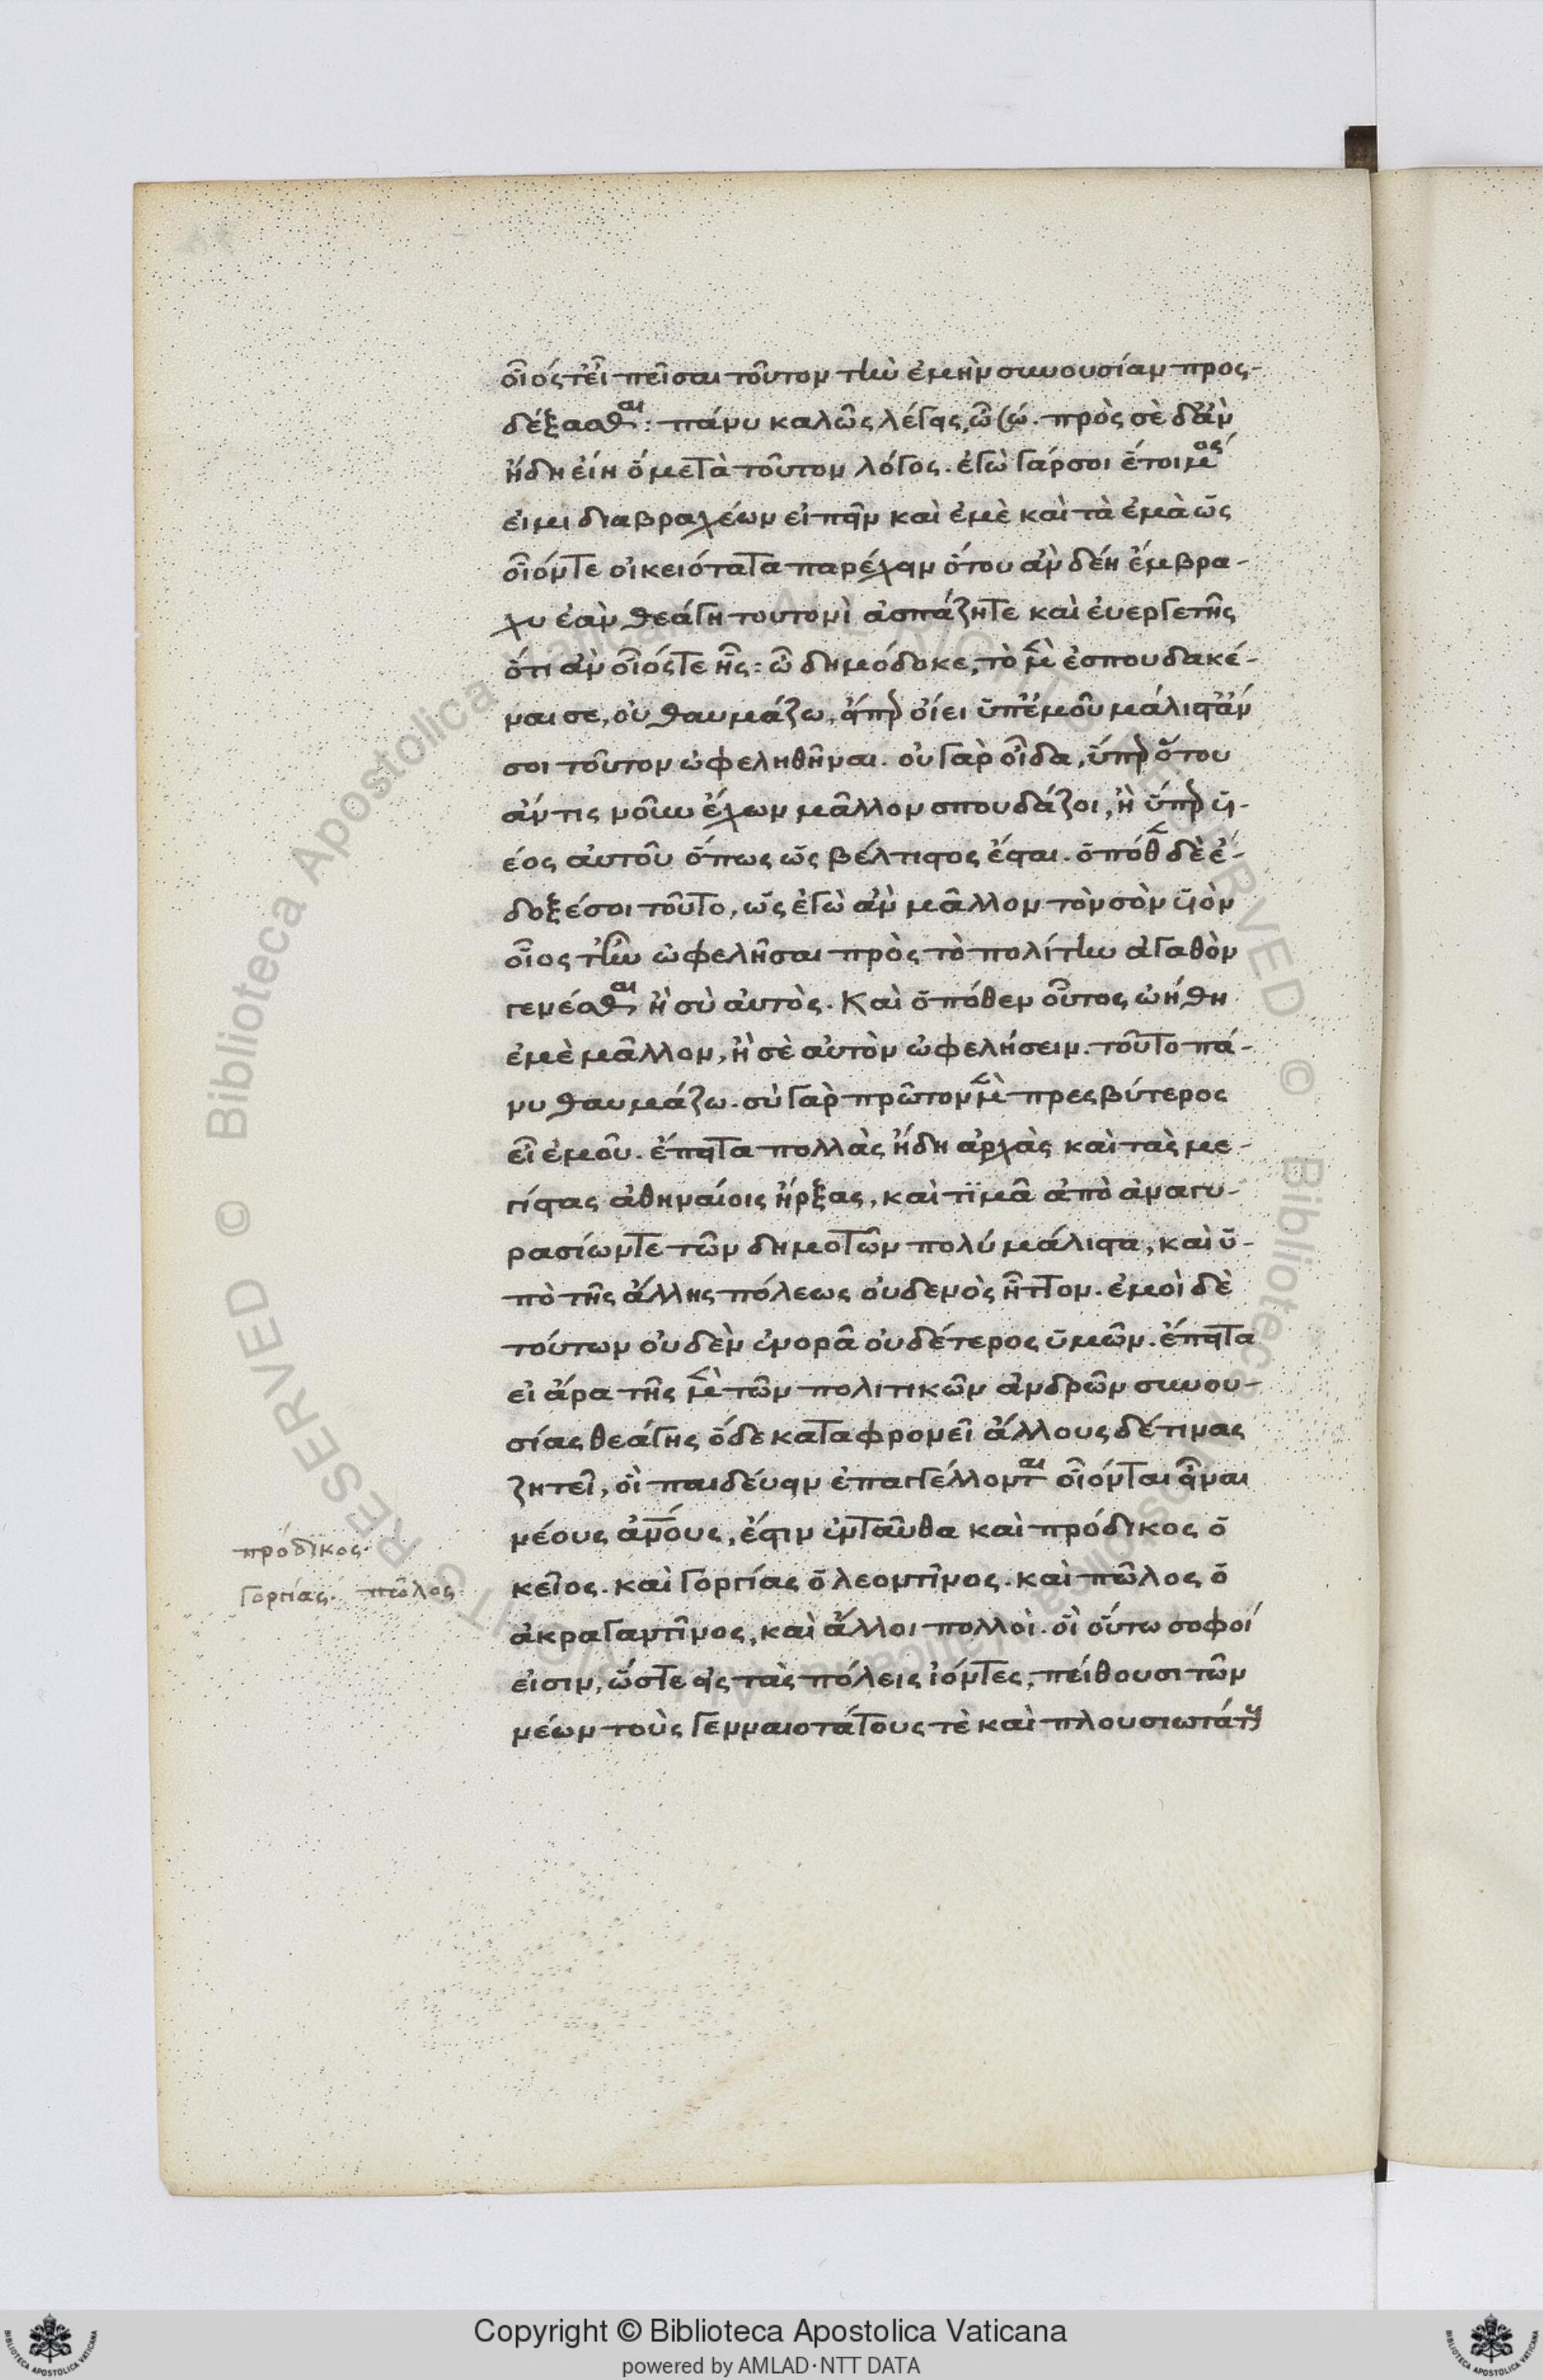 οἷός τ' εἶ πεῖσαι τοῦτον τὴν ἐμὴν συνουσίαν προς-
δέξασθαι: πάνυ καλῶς λέγεις, ὦ σώ. πρὸς σὲ δ' ἂν
ἤδη εἴη ὁ μετὰ τοῦτον λόγος. ἐγὼ γάρ σοι ἕτοιμός
εἰμι διαβραχέων εἰπεῖν καὶ ἐμὲ καὶ τὰ ἐμὰ ὡς
οἷόντε οἰκειότατα παρέχειν ὅτου ἂν δέη ἐμβρα-
χυ ἐὰν θεάγη τουτονὶ ἀσπάζητε καὶ ἐυεργετῆς
ὅτι ἂν οἷόςτε ῆς: ὦ δημόδοκε, τὸ μὲν ἐσπουδακέ-
ναι σε, οὐ θαυμάζω, εἴπερ οἴει ὑπ' ἐμοῦ μάλιστ' ἄν
σοι τοῦτον ὠφεληθῆναι. οὐ γὰρ οἶδα, ὑπὲρ ὅτου
ἄν τις νοῦν ἔχων μᾶλλον σπουδάζοι, ἢ ὑπὲρ ὑι-
έος αὐτοῦ ὅπως ὡς βέλτιστος ἔσται. ὁπόθεν δὲ ἔ-
δοξέ σοι τοῦτο, ὡς ἐγὼ ἂν μᾶλλον τὸν σὸν ὑιὸν
οἷος τ' ἦν ὠφελῆσαι πρὸς τὸ πολίτην ἀγαθὸν
γενέσθαι ἢ σὺ αὐτὸς. Καὶ ὁπόθεν οὗτος ὠήθη
ἐμὲ μᾶλλον, ἢ σὲ αὐτὸν ὠφελήσειν. τοῦτο πά-
νυ θαυμάζω. σὺ γὰρ πρῶτον μὲν πρεςβύτερος
εἶ ἐμοῦ. ἔπειτα πολλὰς ἤδη ἀρχὰς καὶ τὰς με-
γίστας ἀθηναίοις ἦρξας, καὶ τϊμᾶ ἀπὸ ἀναγυ-
ρασίωντε τῶν δημοτῶν πολύ μάλιστα, καὶ ὑ-
πὸ τῆς ἄλλης πόλεως οὐδενὸς ἧττον. ἐμοὶ δὲ
τούτων οὐδὲν ἐνορᾶ οὐδέτερος ὑμῶν. ἔπειτα
εἰ ἄρα τῆς μὲν τῶν πολιτικῶν ἀνδρῶν συνου-
σίας θεάγης ὅδε καταφρονεῖ ἄλλους δέ τινας
ζητεῖ, οἳ παιδέυειν ἐπαγγέλλονται οἷόνται εἶναι
νέους ἀν͞ους, ἔστιν ἐνταῦθα καὶ πρόδικος ὁ
κεῖος. καὶ Γοργίας ὁ λεοντῖνος. καὶ πῶλος ὁ
ἀκραγαντῖνος, καὶ ἄλλοι πολλοὶ. οἳ οὕτω σοφοί
εἰσιν, ὥστε εἰς τὰς πόλεις ἰόντες, πείθουσι τῶν
νέων τοὺς γενναιοτάτους τὲ καὶ πλουσιωτάτους
πρόδϊκος.
Γοργίας. πῶλος
Copyright © Biblioteca Apostolica Vaticana
powered by AMLAD·NTT DATA